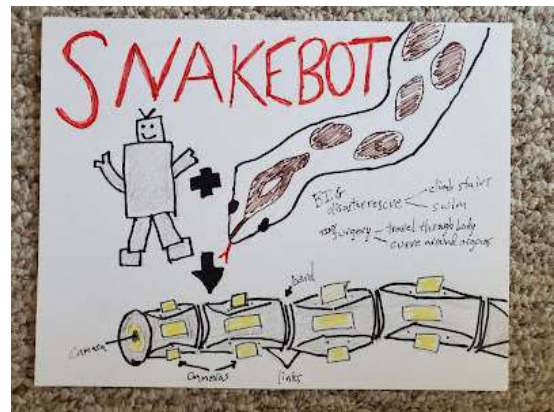 SNAKEBOT
BIG
disaster rescue
climb stairs
swim
surgery
travel through body
curve around organs
band
Camera
cameras
links